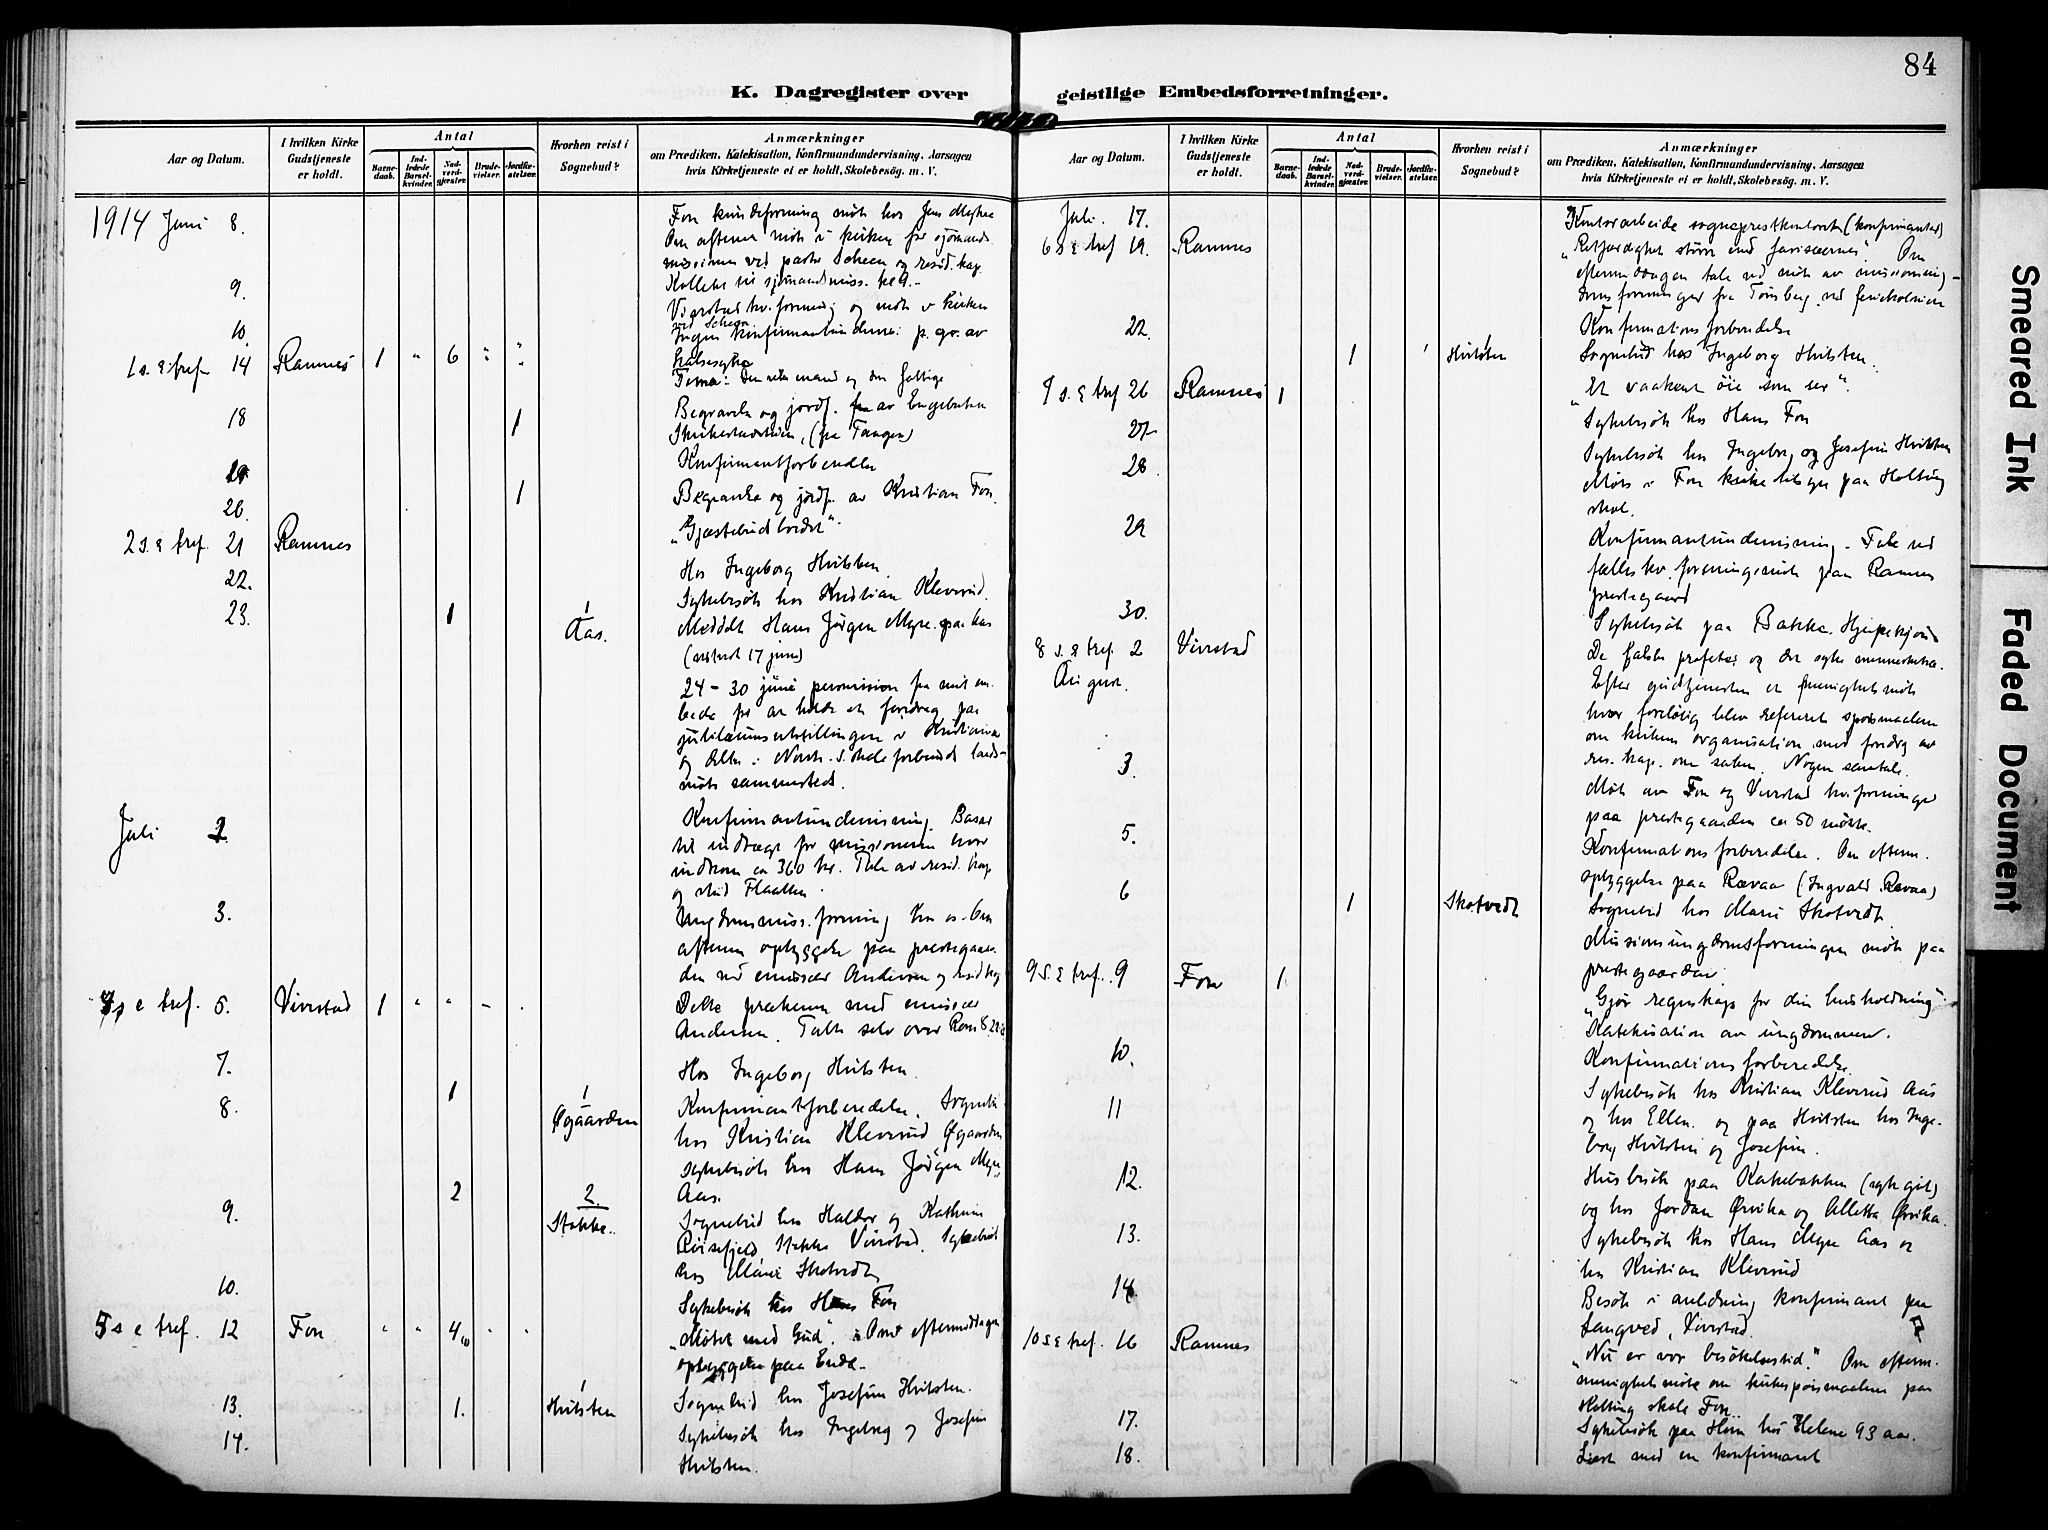 84
K. Dagregister over geistlige Embedsforretninger.
Aar og Datum.
I hvilken Kirke Gudstjeneste er holdt.
Antal
Barne-daab.
Ind-ledede Barsel-kvinder.
Nad-verd-gjæster.
Brude-vielser.
Jordfæ-stelser.
Hvorhen reist i Sognebud?
Anmærkninger
om Prædiken, Katekisation, Konfirmandundervisning, Aarsagen
hvis Kirketjeneste ei er holdt, Skolebesøg. m. V.
1914 Juni 8. Fon kvindeforening møte hos
Om aftenen møte i kirken for sjømands
missionen ved pastor Scheen og resid. kap.
9. Vivestad kv. forening og møte i kirken
ved Scheen
10. Ingen p. gr. av
halsesyke
1 s. e. tref 14 Ramnes 1 " 6 " "
Tema: Den rike mand og den fattige
18 1 Begravelse og jordf. av
(fra Tangen)
Konfirmantforbered
20. 1 Begravelse og jordf. av Kristian Fon.
2 s. e. tref. 21 Ramnes "Gjæstebudbordet".
22. Hos Ingeborg Hvitsten.
Sykebesøk hos Kristian Kleverud.
23. 1 1 Aas. Meddelt Hans Jørgen Myre paa Aas
(17 juni)
24 - 30 juni permission fra mit em-
bede for at holde et foredrag paa
jubilæumsutstillingen i Kristiania
og delta i Norsk
møte sammesteds.
Juli 2. Konfirmantundervisning. Basar
til indtægt for missionen hvor
indkom ca 360 kr. Tale av resid. kap
og stud Flaatten.
3. Ungdomsmiss. forening hos os. Om
aftenen opbyggelse paa prestegaar-
den ved emissær Andersen og resid kap
s e tref. 5. Vivestad 1 " " - .
Delte prekenen med emissær
Andersen. Talte selv over Rom 8.
7. Hos Ingeborg Hvitsten.
8. 1 1 Øgaarden Konfirmantforberedelse. Sognebud
hos Kristian Kleverud Øgaarden
sykebesøk hos Hans Jørgen Myre,
Aas.
9. 2 2. Stokke. Sognebud hos Haldor og Kathrine
Stokke Vivestad. Sykebesøk
hos Marie Skotvedt
10. Sykebesøk hos Hans Fon
5 s e tref. 12 Fon " " 4 " "
"Møtet med Gud". Om eftermiddagen
opbyggelse paa
13. 1. 1 Hvitsten Sognebud hos Josefine Hvitsten.
14. Sykebesøk hos Ingeborg og Josefine
Hvitsten.
Juli. 17. Kontorarbeide sogneprestkontoret (konfirmanter)
6 s e tref 19. Ramnes "Retfærdighet større end farisæernes". Om
eftermiddagen tale ved møte av missionskvinde-
foreninger fra Tønsberg
22. Konfirmationsforberedelse
1 1 Hvitsten Sognebud hos Ingeborg Hvitsten.
7 s. e tref 26 Ramnes 1 "Et vaakent øie som ser".
27 Sykebesøk hos Hans Fon
28. Sykebesøk hos Ingeborg og Josefine Hvitsten
Møte i Fon kirketilsyn paa Holtung
skole.
29 Konfirmantundervisning. Tale ved
fælles kv. foreningsmøte paa Ramnes
prestegaard
30. Sykebesøk paa Bakke,
8 s. e tref. 2 August. Vivestad De falske profeter og det syke menneskehe.
Efter gudstjenesten et menighetsmøte
hvor foreløbig blev refereret spørsmaalene
om kirkens organisation med foredrag av
res. kap. om saken. Nogen samtale.
3. Møte av Fon og Vivestad kv. foreninger
paa prestegaarden ca 50 møtte.
5. Konfirmationsforberedelse. Om efterm.
opbyggelse paa Rævaa (Ingvald Rævaa)
6 1 Skotvedt Sognebud hos Marie Skotvedt
Missionsungdomsforeningen møte paa
prestegaarden
9 s. e tref. 9 Fon 1 "Gjør regnskap for din husholdning".
Katekisation av ungdommen.
10. Konfirmationsforberedelse
11 Sykebesøk hos Kristian Kleverud Aas
og hos Ellen. og paa Hvitsten hos Inge-
borg Hvitsten og Josefine.
12. Husbesøk paa Kakebakken (sykt gift)
og hos Jordan Ørvika og Alletta Ørvika.
13. Sykebesøk hos Hans Myre Aas og
hos Kristian Kleverud
14. Besøk i anledning konfirmant paa
Langved, Vivestad.
10 s e tref. 16 Ramnes "Nu er vor besøkelsestid." Om efterm.
menighetsmøte om kirkespørsmaalene paa
Holtung skole Fon.
17. Sykebesøk paa hos Helene 93 aar.
18. Læst med en konfirmant
Smeared Ink
Faded Document